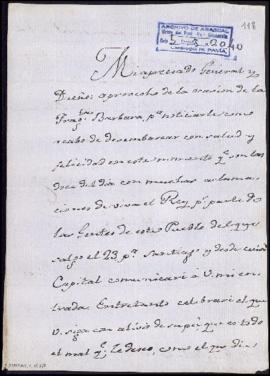 118
ARCHIVO DE ABASCAL
Mi apreciado General y
Dueño: aprovecho de la ocasion de la
Frag.ta Barbara, p.a noticiarle como
acabo de desembarcar con salud y
felicidad en este momento q.e son las
doce del dia con muchas aclama-
ciones de viva el Rey p.r parte de
las Gentes de este Pueblo del q.e
salgo el 23 p.a Santiago y desde
Capital comunicaré a V. mi en-
trada. Entretanto celebraré el que
V. siga con alivio de
el mal q.e le deseo, como el que